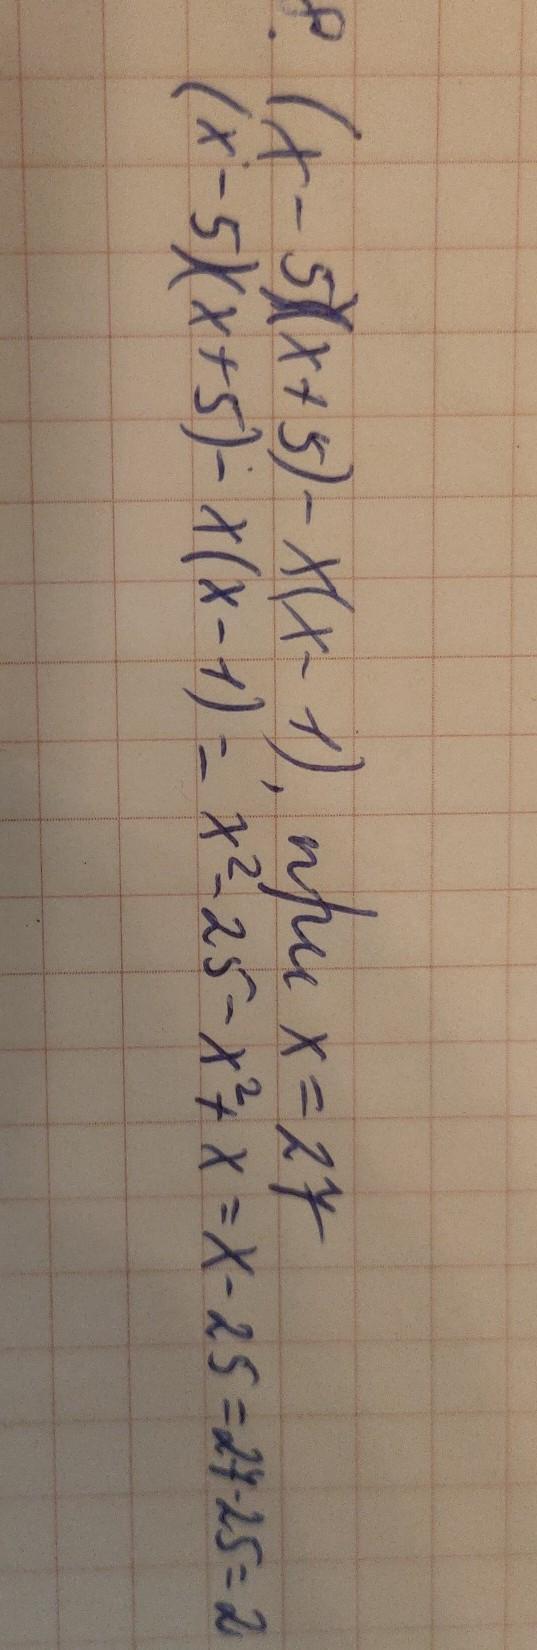 8. (x-5)(x+5)-x(x-1), при x=27
(x-5)(x+5)-x(x-1)=x²-25-x²+x=x-25=27-25=2